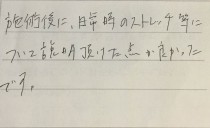 施術後に、日常時のストレッチ等に
ついて説明頂けた点が良かった
です。